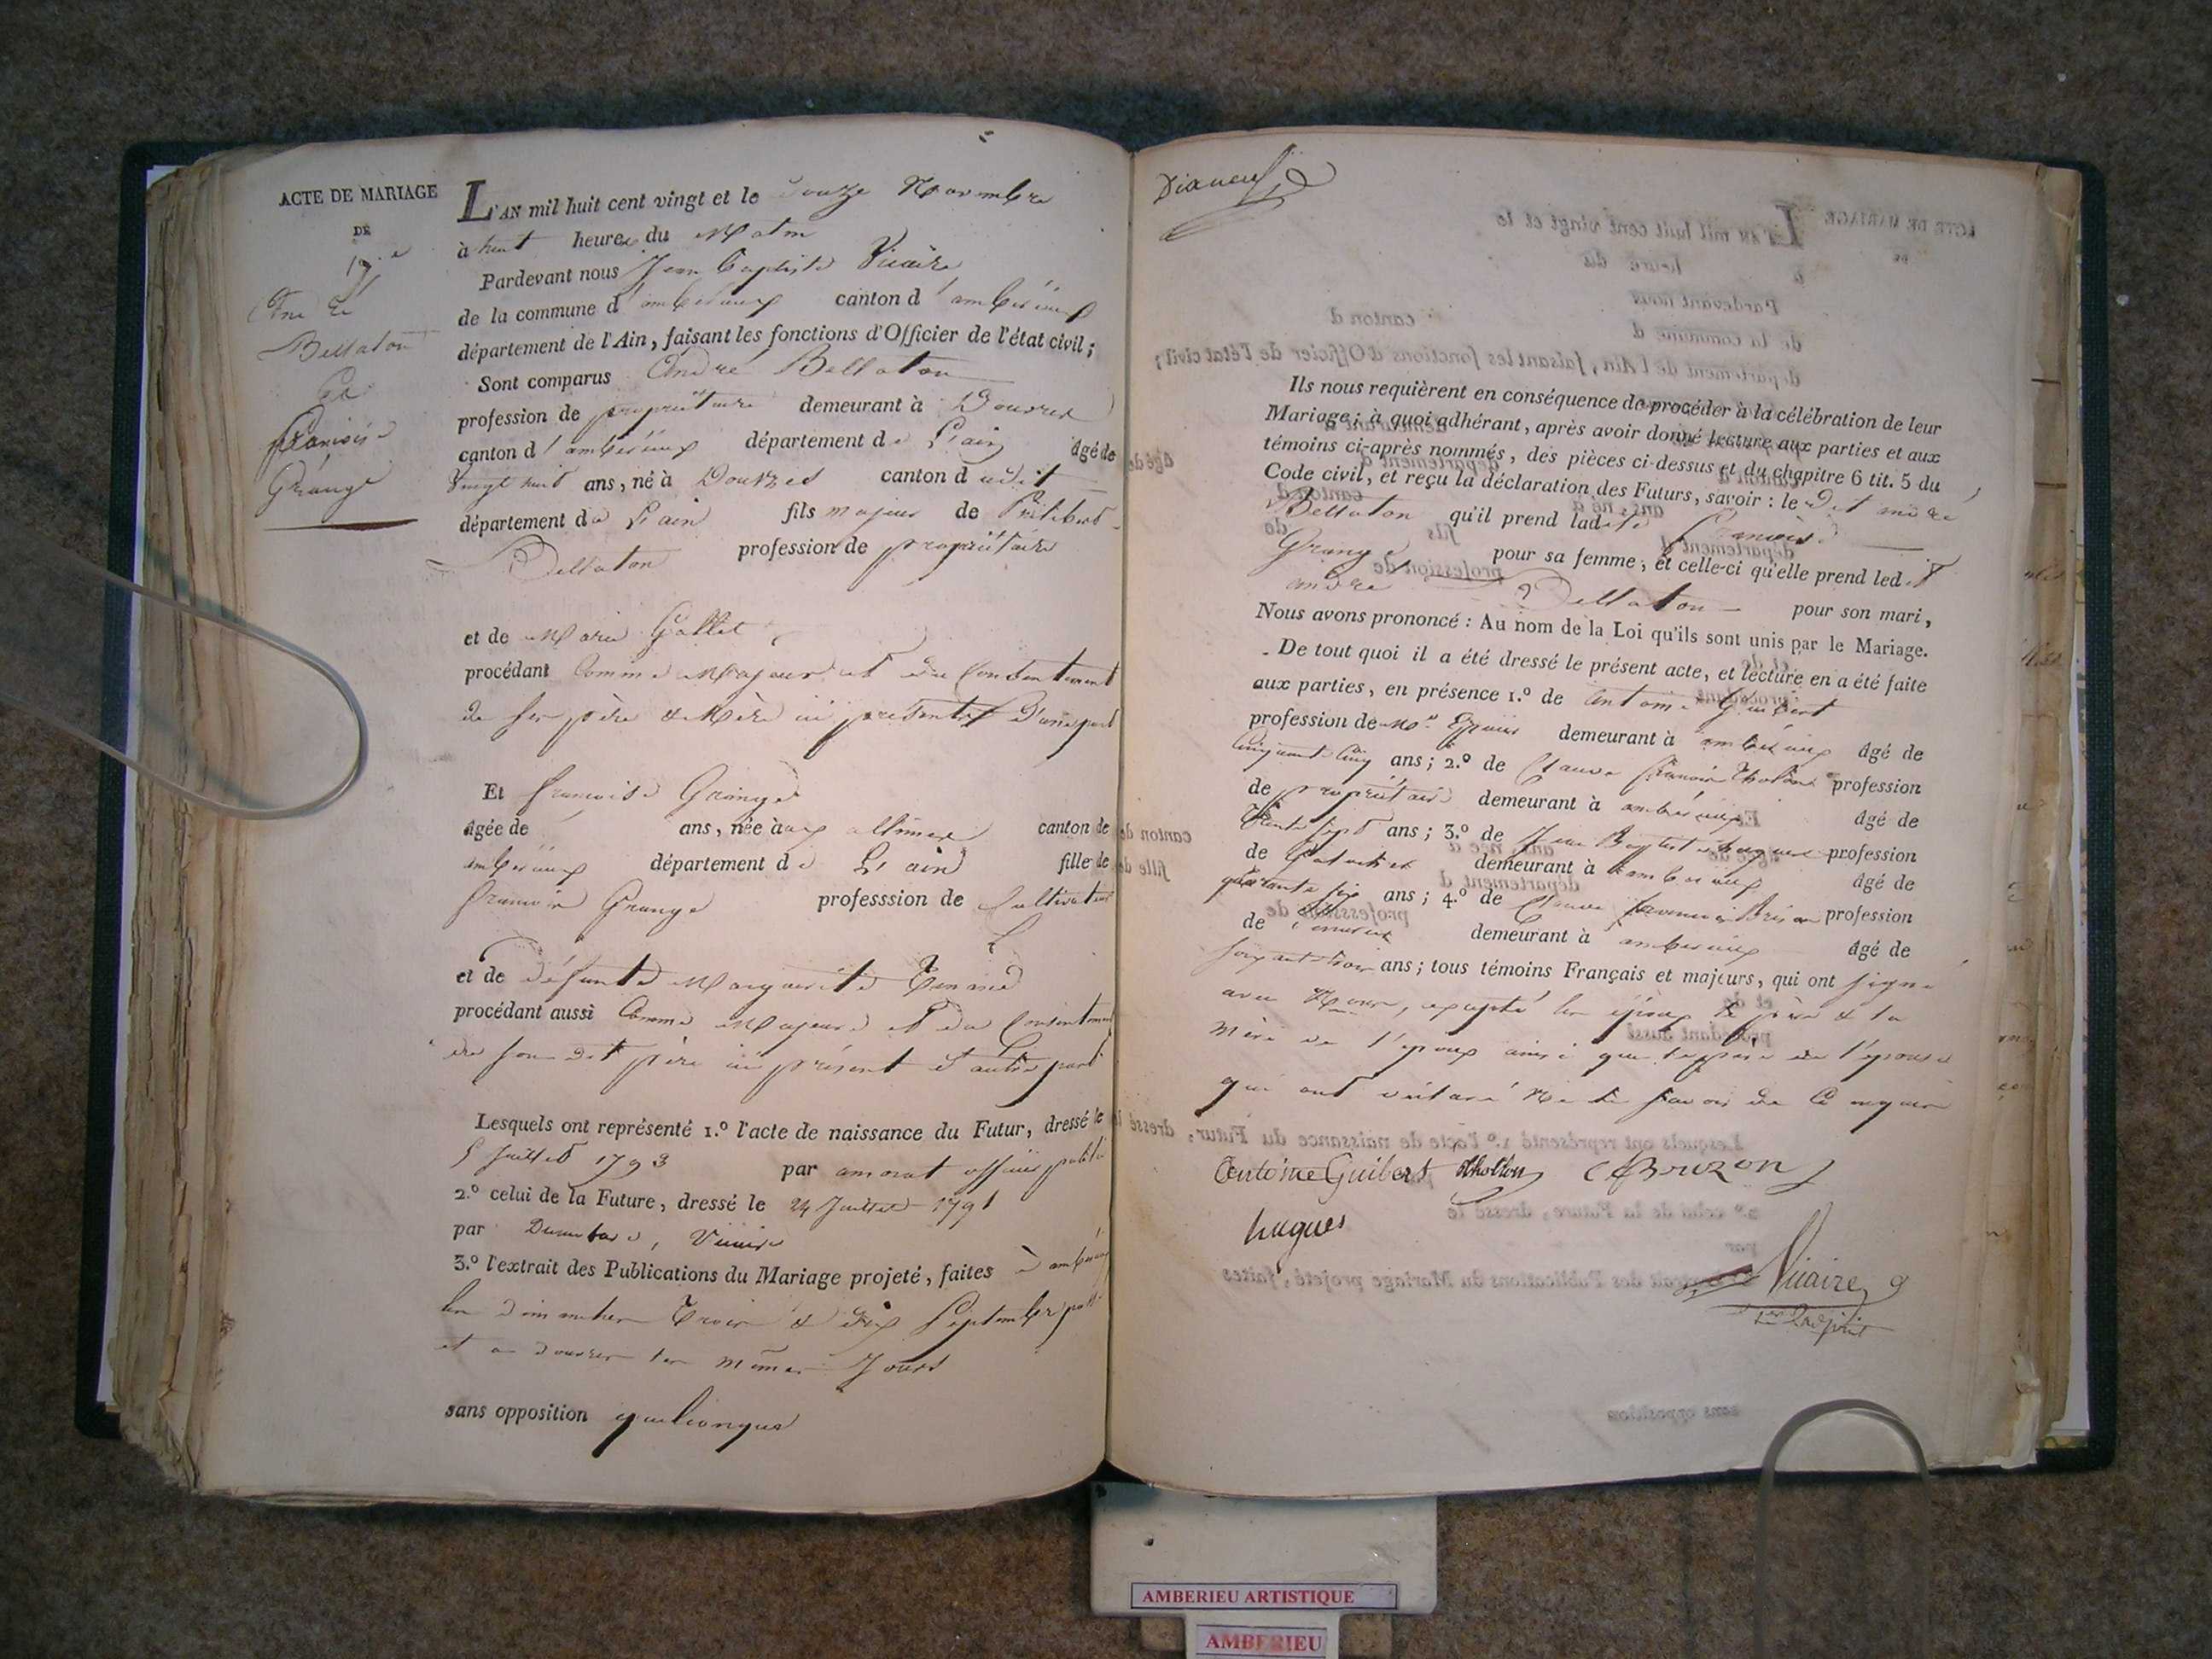 ACTE DE MARIAGE
DE
17e
André
Bellaton
Et
françoise
Grange
L'AN mil huit cent vingt et le douze Novembre
à huit heures du Matin
Pardevant nous Jean Baptiste Vicaire
de la commune d'ambérieux canton d'ambérieux
département de l'Ain, faisant les fonctions d'Officier de l'état civil;
Sont comparus André Bellaton
profession de propriétaire demeurant à Douvres
canton d'ambérieux département de L'ain âgé de
vingt huit ans, né à Douvres canton dudit
département de L'ain fils majeur de Philibert
Bellaton profession de propriétaire
et de Marie Gallet
procédant comme Majeur et du Consentement
de ses père & Mère ici présents d'une part
Et françoise Grange
âgée de ans, née aux allimes canton de
ambérieux département de L'ain fille de
françois Grange professsion de Cultivateur
et de défunte Marguerite
procédant aussi Comme Majeure et du Consentement
de son dit père ici présent d'autre part
Lesquels ont représenté 1.º l'acte de naissance du Futur, dressé le
5 Juillet 1793 par amorat officier public
2.º celui de la Future, dressé le 24 Juillet 1791
par Vicaire
3.º l'extrait des Publications du Mariage projeté, faites à ambérieux
les dimanches trois & dix Septembre
et a douvres les mêmes Jours
sans opposition quelconque
Dixneuf
Ils nous requièrent en conséquence de procéder à la célébration de leur
Mariage; à quoi adhérant, après avoir donné lecture aux parties et aux
témoins ci-après nommés, des pièces ci-dessus et du chapitre 6 tit. 5 du
Code civil, et reçu la déclaration des Futurs, savoir: le dit andré
Bellaton qu'il prend ladite françoise
Grange pour sa femme, et celle-ci qu'elle prend ledit
andré Bellaton pour son mari,
Nous avons prononcé: Au nom de la Loi qu'ils sont unis par le Mariage.
De tout quoi il a été dressé le présent acte, et lecture en a été faite
aux parties, en présence 1.º de antoine Guibert
profession de demeurant à ambérieux âgé de
Cinquante Cinq ans; 2.º de Claude françois profession
de propriétaire demeurant à ambérieux âgé de
trente sept ans; 3.º de Jean Baptiste hugues profession
de demeurant à ambérieux âgé de
quarante six ans; 4.º de Claude profession
de demeurant à ambérieux âgé de
soixante trois ans; tous témoins Français et majeurs, qui ont signé
avec Nous, excepté les époux le père & la
mère de l'époux ainsi que le père de l'épouse
qui ont déclaré Ne le savoir de Ce enquis
Antoine Guibert Tholon CfBruzon
hugues
Vicaire
AMBERIEU ARTISTIQUE
AMBERIEU